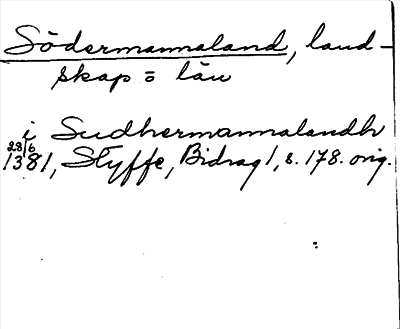 Södermannaland, land-
skap o län
i Sudhermannalandh
28/6 1381, Styffe, Bidrag 1, s. 178. orig.